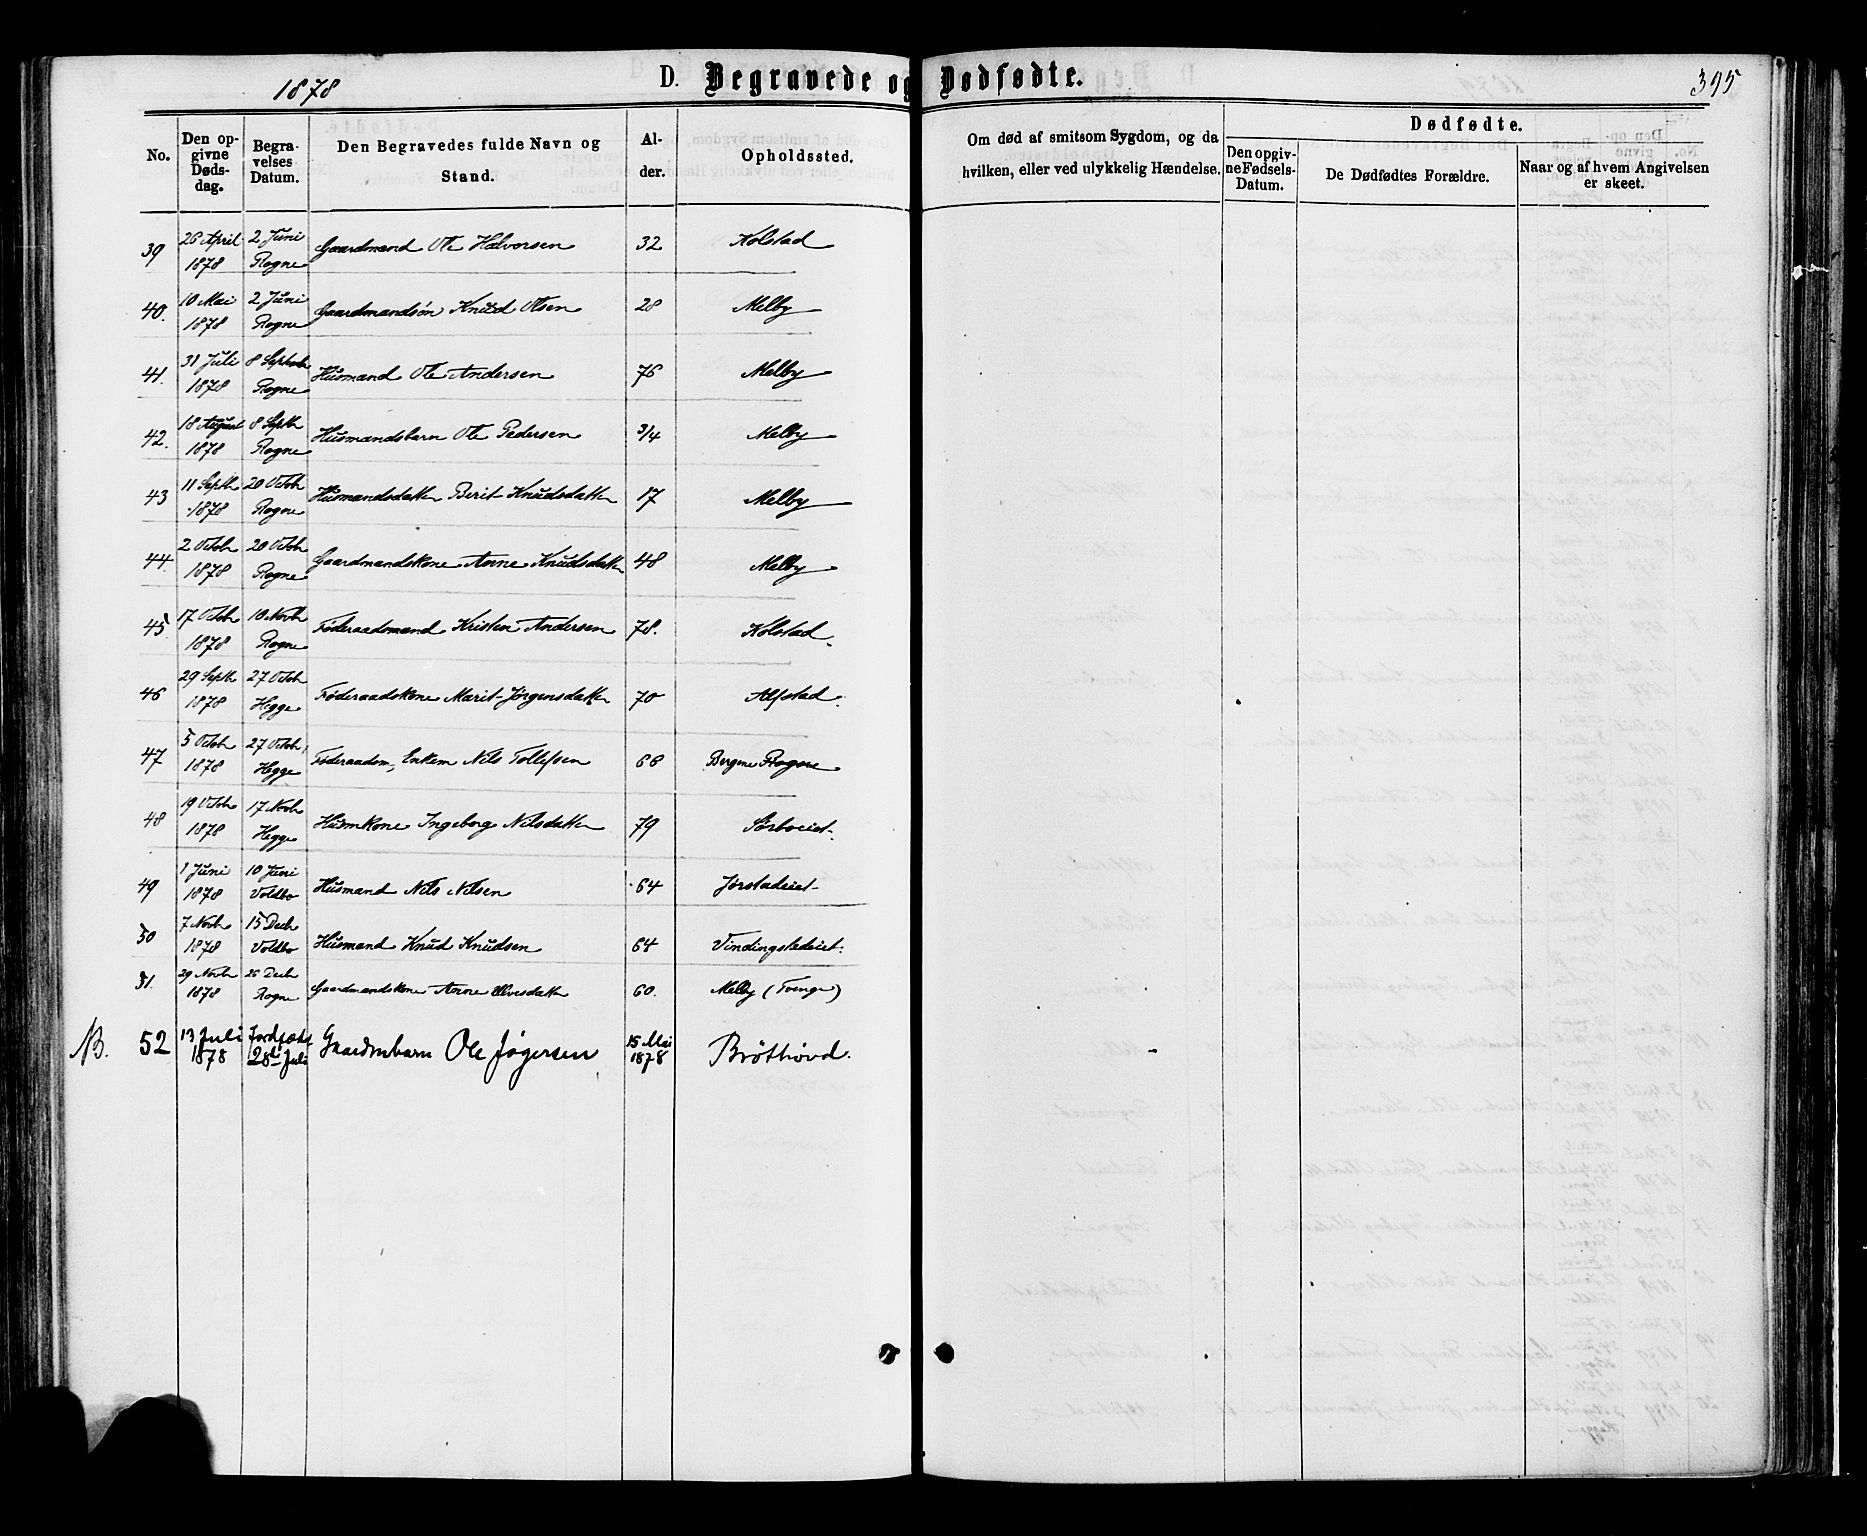 1878 D. Begravede og Dødfødte. 395
No. Den opgivne Dødsdag. Begravelses Datum. Den Begravedes fulde Navn og Stand. Alder. Opholdssted. Om død af smitsom Sygdom, og da hvilken, eller ved ulykkelig Hændelse. Dødfødte.
Den opgivne Fødsels-Datum. De Dødfødtes Forældre. Naar og af hvem Angivelsen er skeet.
39 26 April 2 Juni Gaardmand Ole Halvorsen 32 Kolstad
1878 Rogne
40. 10 Mai 2 Juni Gaardmandsøn Knud Olsen 28 Melby
1878 Rogne
41. 31 Juli 8 Septbr Husmand Ole Andersen 76 Melby
1878 Rogne
42. 18 August 8 Septb Husmandsbarn Ole Pedersen 3/4 Melby
1878 Rogne
43 11 Septb 20 Octob Husmandsdatter Berit Knudsdatter 17 Melby
1878 Rogne
44. 2 Octob 20 Octob Gaardmandskone Anne Knudsdatter 48 Melby
1878 Rogne
45 17 Octob 10 Novb Føderaadsmand Kristen Andersen 78. Kolstad
1878 Rogne
46 29 Septb 27 Octob Føderaadskone Marit Jørgensdatter 70 Alfstad.
1878 Hegge
47 5 Octob 27 Octob Føderaadsm, Enkem Nils Tollefsen 66 Bergene Rogne
1878 Hegge
48 19 Octob 17 Novb Husmkone Ingeborg Nilsdatter 79 Sørboeiet.
1878 Hegge
49 1 Juni 10 Juni Husmand Nils Nilsen 64 Jørstadeiet
1878 Voldbo
50 7 Novb 15 Decb Husmand Knud Knudsen 64 Vindingstadeiet.
1878 Voldbo
51. 29 Novb 26 Decb Gaardmandskone Anne Olvesdatter 60. Melby (Tvenge)
1878 Rogne
NB. 52 13 Juli Jordfæst Gaardmbarn Ole Jøgersen 15 Mai Brøthovd.
1878 28de Juli 1878